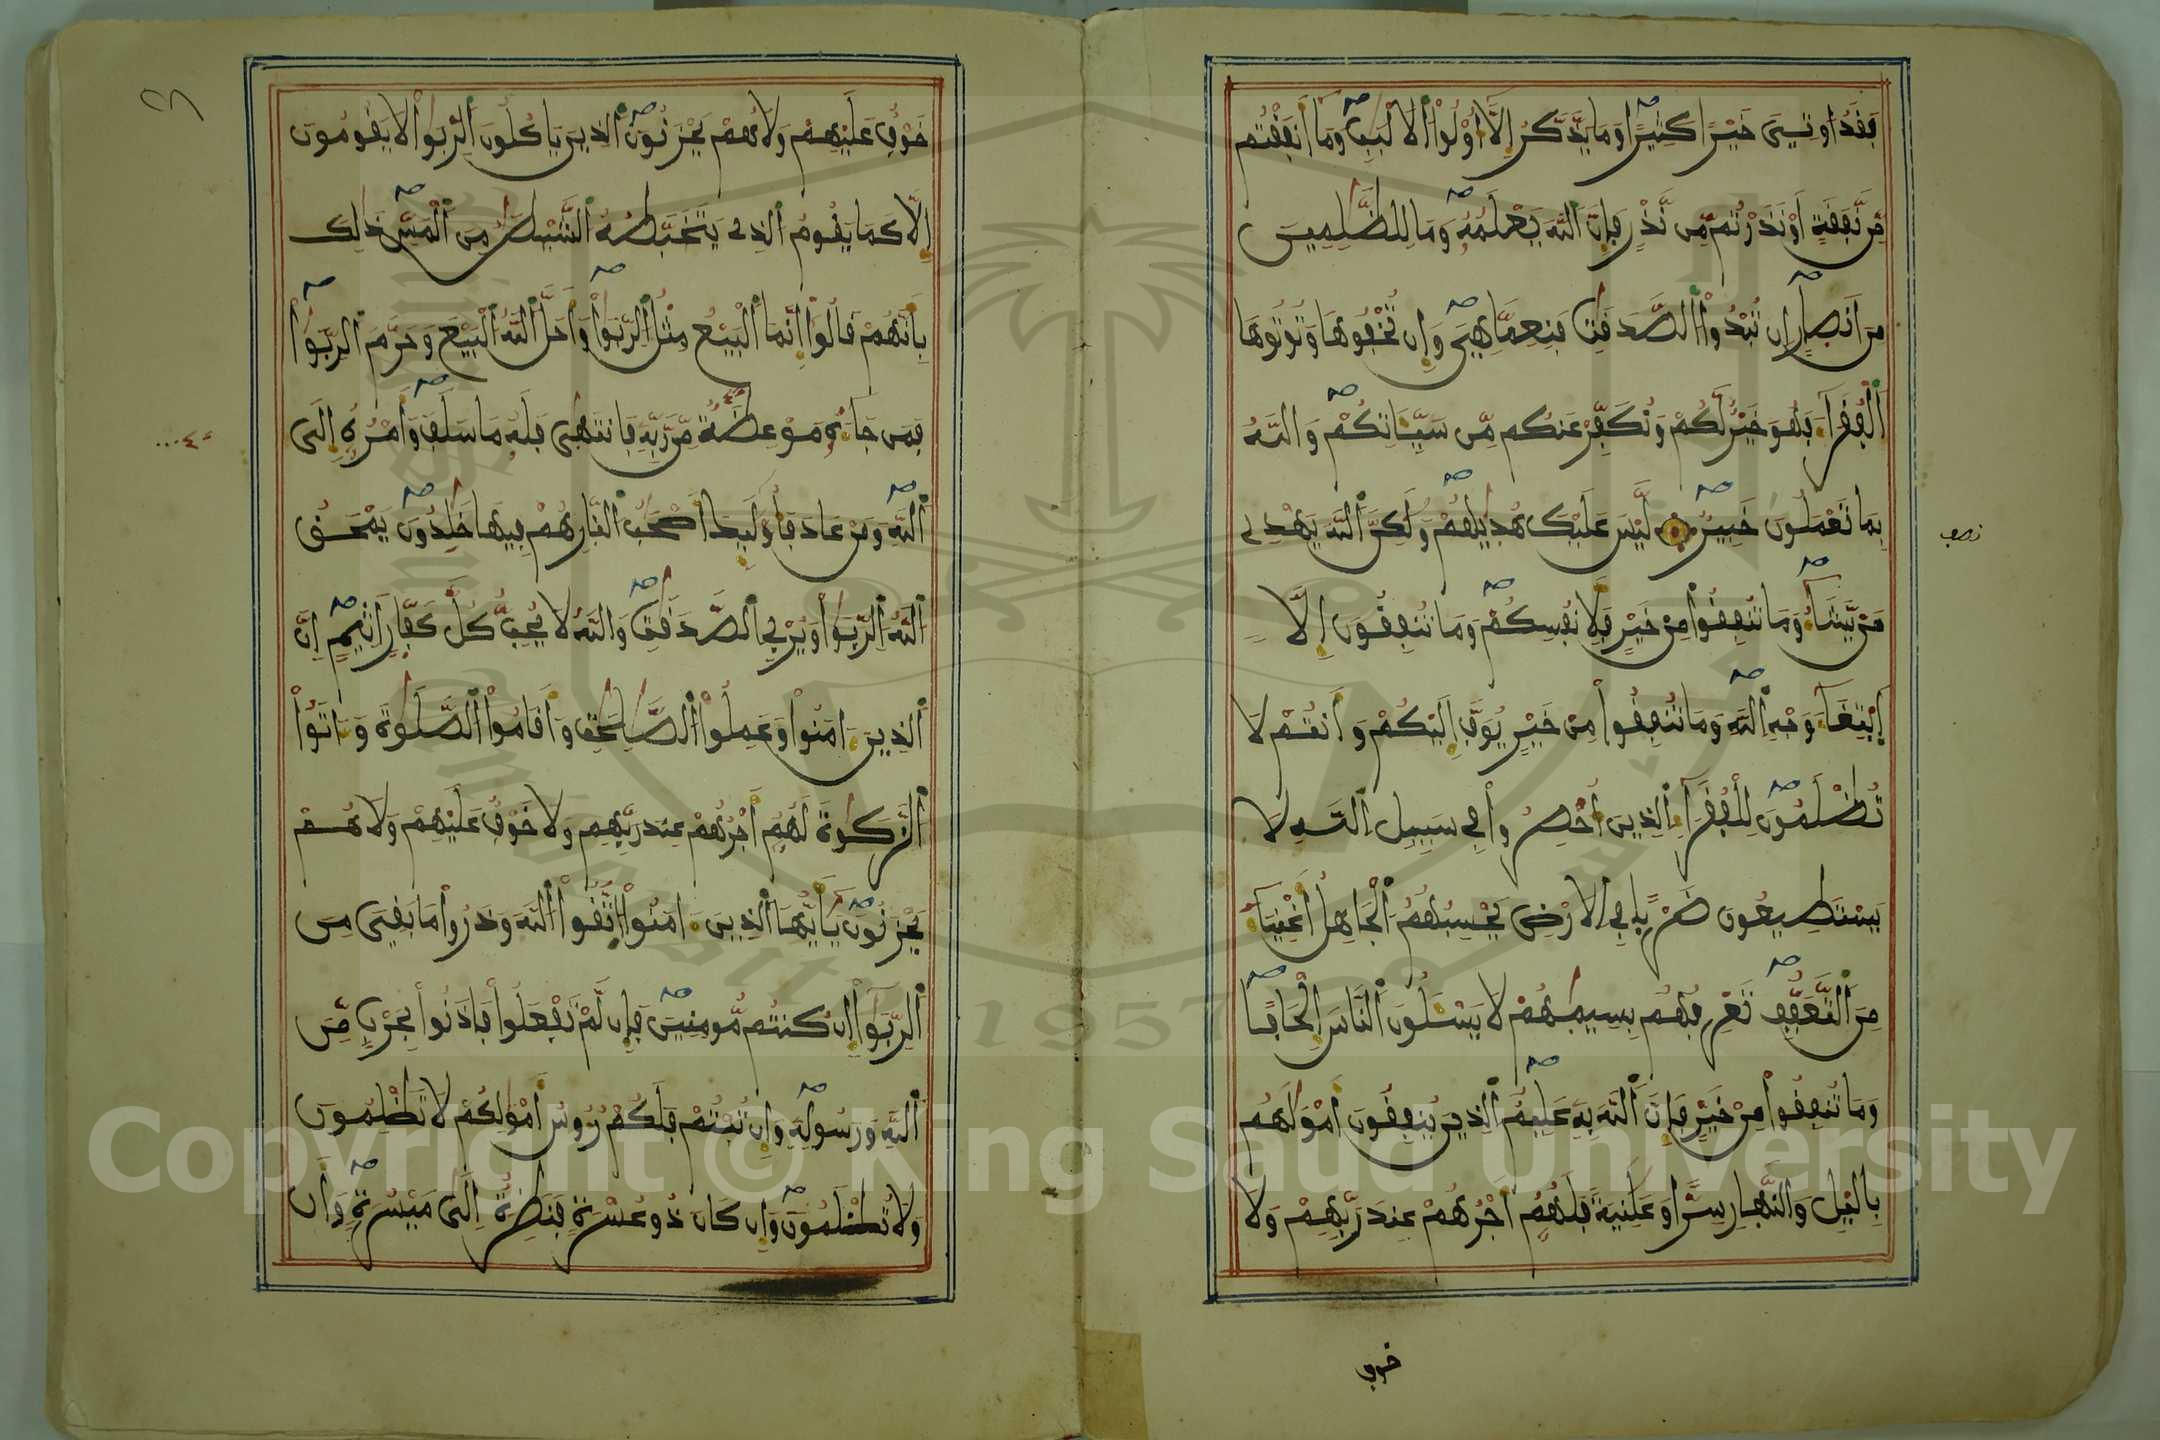 فقد اوتي خيرا كثيرا وما يذكر إلا أولوا الالبب وما أنفقتم
من نفقة أو نذرتم من نذر فإن الله يعلمه وما للظلمين
من انصار ان تبدوا الصدقت فنعما هي وإن تخفوها وتوتوها
الفقراء فهو خير لكم ونكفر عنكم من سيئاتكم والله
بما تعملون خبير ليس عليك هديهم ولكن الله يهدي
نصف
من يشاء وما تنفقوا من خير فلانفسكم وما تنفقون إلا
ابتغاء وجه الله وما تنفقوا من خير يوف إليكم وأنتم لا
تظلمون للفقراء الذين أحصروا في سبيل الله لا
يستطيعون ضربا في الارض يحسبهم الجاهل أغنياء
من التعفف تعرفهم بسيمهم لا يسئلون الناس إلحافا
وما تنفقوا من خير فإن الله به عليم الذين ينفقون أمولهم
باليل والنهار سرا وعلنية فلهم أجرهم عند ربهم ولا
خوف
خوف عليهم ولا هم يحزنون الذين ياكلون الربوا لا يقومون
إلا كما يقوم الذي يتخبطه الشيطن من المس ذلك
بأنهم قالوا إنما البيع مثل الربوا وأحل الله البيع وحرم الربوا
فمن جاءه موعظة من ربه فانتهى فله ما سلف وأمره إلى
الله ومن عاد فأولئك أصحب النار هم فيها خلدون يمحق
الله الربوا ويربي الصدقت والله لا يحب كل كفار أثيم إن
الذين ءامنوا وعملوا الصلحت وأقاموا الصلوة وءاتوا
الزكوة لهم أجرهم عند ربهم ولا خوف عليهم ولا هم
يحزنون يأيها الذين ءامنوا اتقوا الله وذروا ما بقي من
الربوا إن كنتم مومنين فإن لم تفعلوا فاذنوا بحرب من
الله ورسوله وإن تبتم فلكم رءوس أمولكم لا تظلمون
ولا تظلمون وإن كان ذو عسرة فنظرة إلى ميسرة وأن
Copyright © King Saud University
King Saud University
1957